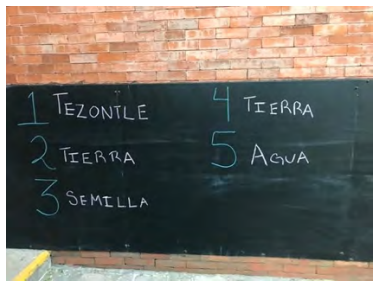 1 TEZONTLE
2 TIERRA
3 SEMILLA
4 TIERRA
5 AGUA